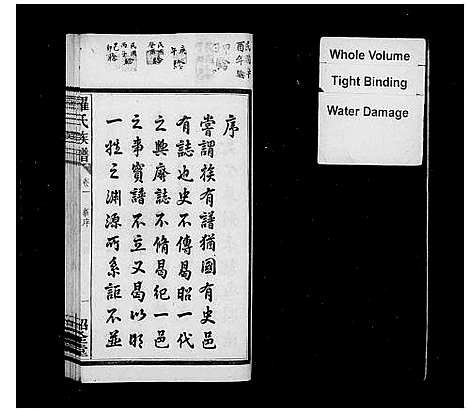 序
嘗謂族有譜猶國有史邑
有誌也史不傳曷昭一代
之興廢誌不脩曷紀一邑
之事實譜不立又曷以明
一姓之淵源所系詎不並
羅氏族譜
卷一
新序
一
Whole Volume
Tight Binding
Water Damage